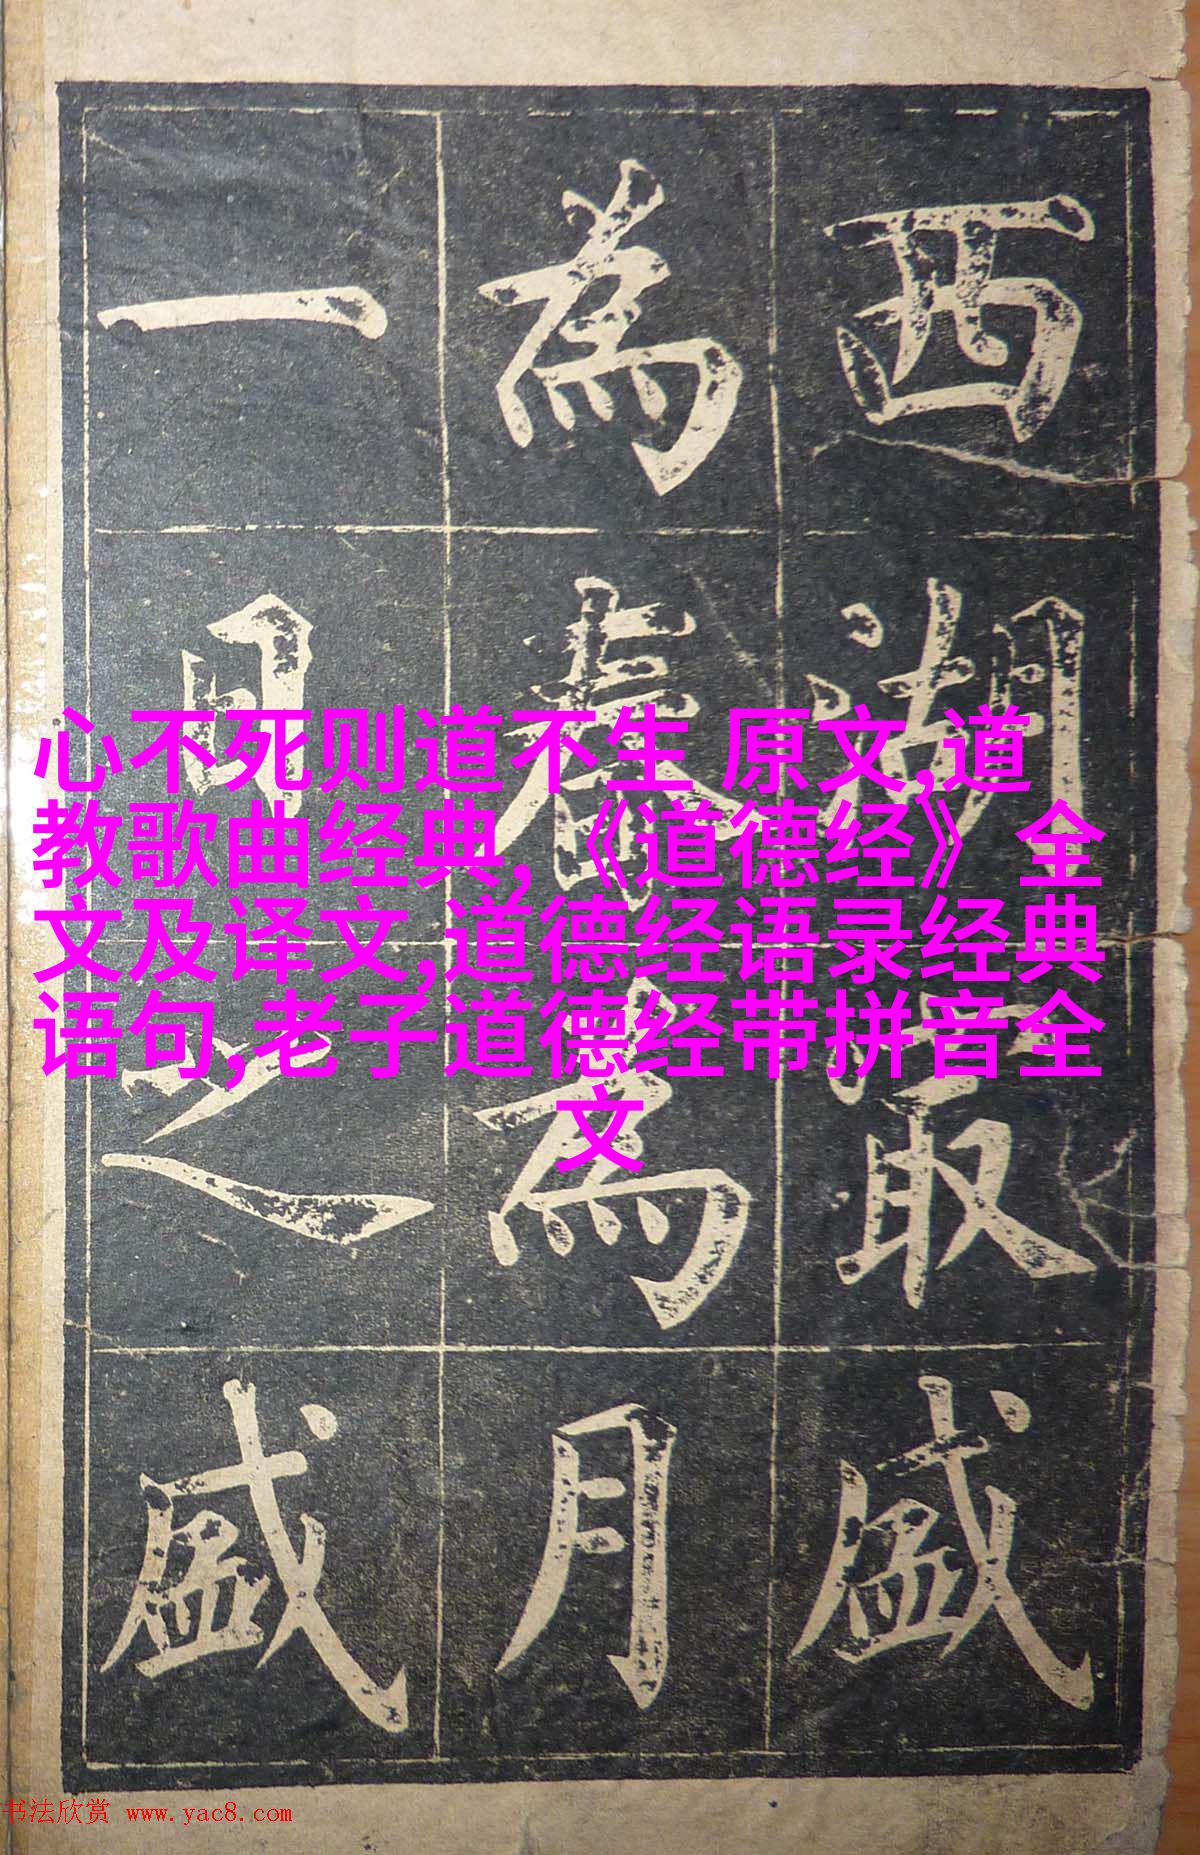 西湖最盛
為春為月
一日之盛
心不死则道不生 原文,道
教歌曲经典,《道德经》全
文及译文,道德经语录经典
语句,老子道德经带拼音全
文
书法欣赏 www.yac8.com